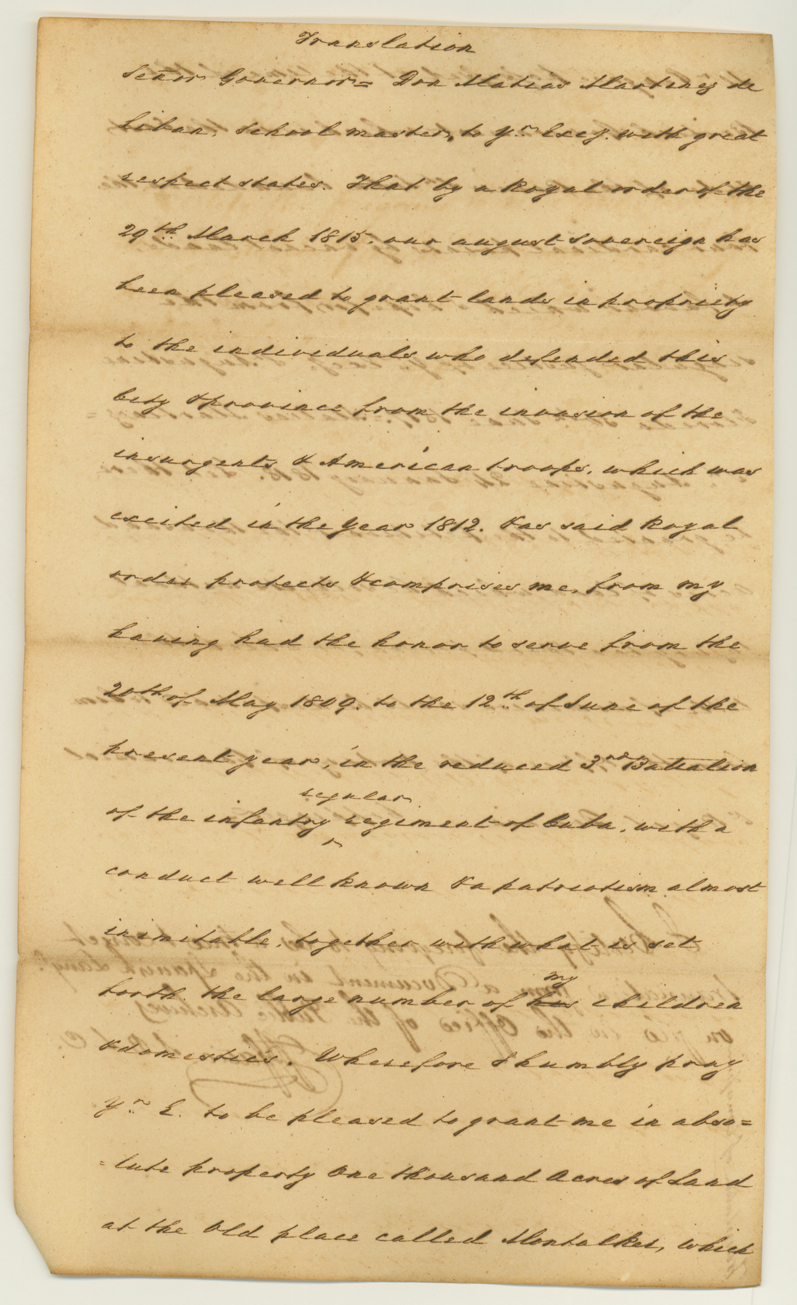 Translation
Señor Governor = Don Matias Martinez de
school master, to yr. Excy. with great
respect states. That by a Royal order of the
29th March 1815. our august sovereign has
been pleased to grant lands in propriety
to the individuals who defended this
City & province from the invasion of the
insurgents & American troops, which was
excited in the year 1812. & as said Royal
order protects & comprises me, from my
having had the honor to serve from the
20th of May 1809. to the 12th of June of the
present year, in the reduced 3rd Battalion
regular
of the infantry regiment of Cuba, with a
conduct well known & a patriotism almost
inimitable, together with what is set
my
forth the large number of his children
& domestics. Wherefore I humbly pray
yr. E. to be pleased to grant me in abso=
=lute property One thousand Acres of Land
at the Old place called which